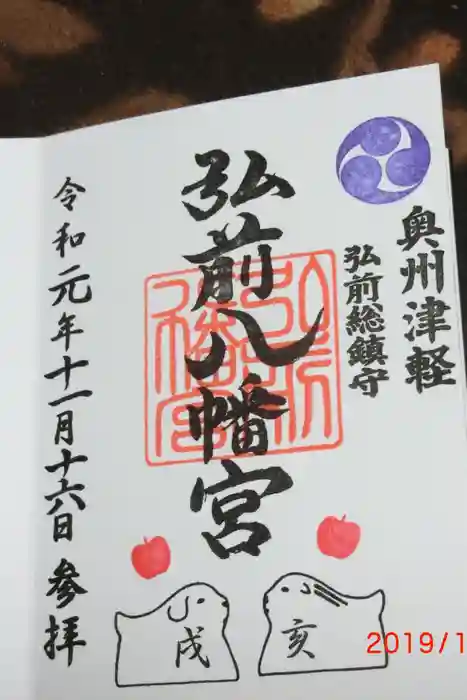 奥州津軽
弘前総鎮守
弘前八幡宮
令和元年十一月十六日 参拝
戌
亥
2019/1